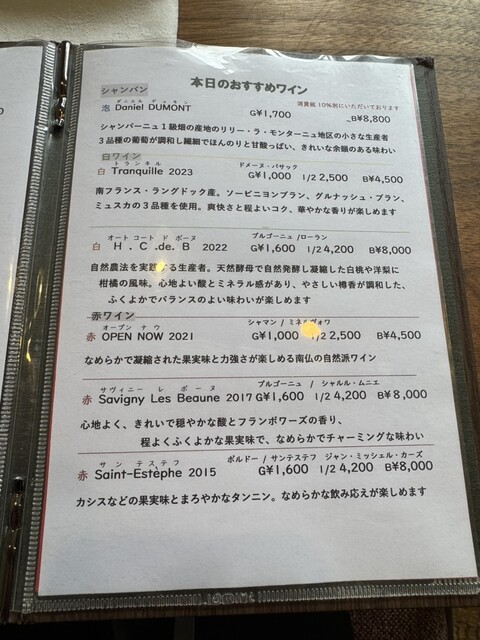 本日のおすすめワイン
シャンパン
ダニエル デュモン
消費税 10%別にいただいております
泡 Daniel DUMONT G¥1,700 B¥8,800
シャンパーニュ1級畑の産地のリリー・ラ・モンターニュ地区の小さな生産者
3品種の葡萄が調和し繊細でほんのりと甘酸っぱい、きれいな余韻のある味わい
白ワイン
トランキル ドメーヌ・パサック
白 Tranquille 2023 G¥1,000 1/2 2,500 B¥4,500
南フランス・ラングドック産。ソービニヨンブラン、グルナッシュ・ブラン、
ミュスカの3品種を使用。爽快さと程よいコク、華やかな香りが楽しめます
オート コート ド ボーヌ ブルゴーニュ/ローラン
白 H . C .de. B 2022 G¥1,600 1/2 4,200 B¥8,000
自然農法を実践する生産者。天然酵母で自然発酵し凝縮した白桃や洋梨に
柑橘の風味。心地よい酸とミネラル感があり、やさしい樽香が調和した、
ふくよかでバランスのよい味わいが楽しめます
赤ワイン
オープン ナウ シャマン / ミネルヴォワ
赤 OPEN NOW 2021 G¥1,000 1/2 2,500 B¥4,500
なめらかで凝縮された果実味と力強さが楽しめる南仏の自然派ワイン
サヴィニー レ ボーヌ ブルゴーニュ / シャルル・ムニエ
赤 Savigny Les Beaune 2017 G¥1,600 1/2 4,200 B¥8,000
心地よく、きれいで穏やかな酸とフランボワーズの香り、
程よくふくよかな果実味で、なめらかでチャーミングな味わい
サン テステフ ボルドー / サンテステフ ジャン・ミッシェル・カーズ
赤 Saint-Estèphe 2015 G¥1,600 1/2 4,200 B¥8,000
カシスなどの果実味とまろやかなタンニン。なめらかな飲み応えが楽しめます